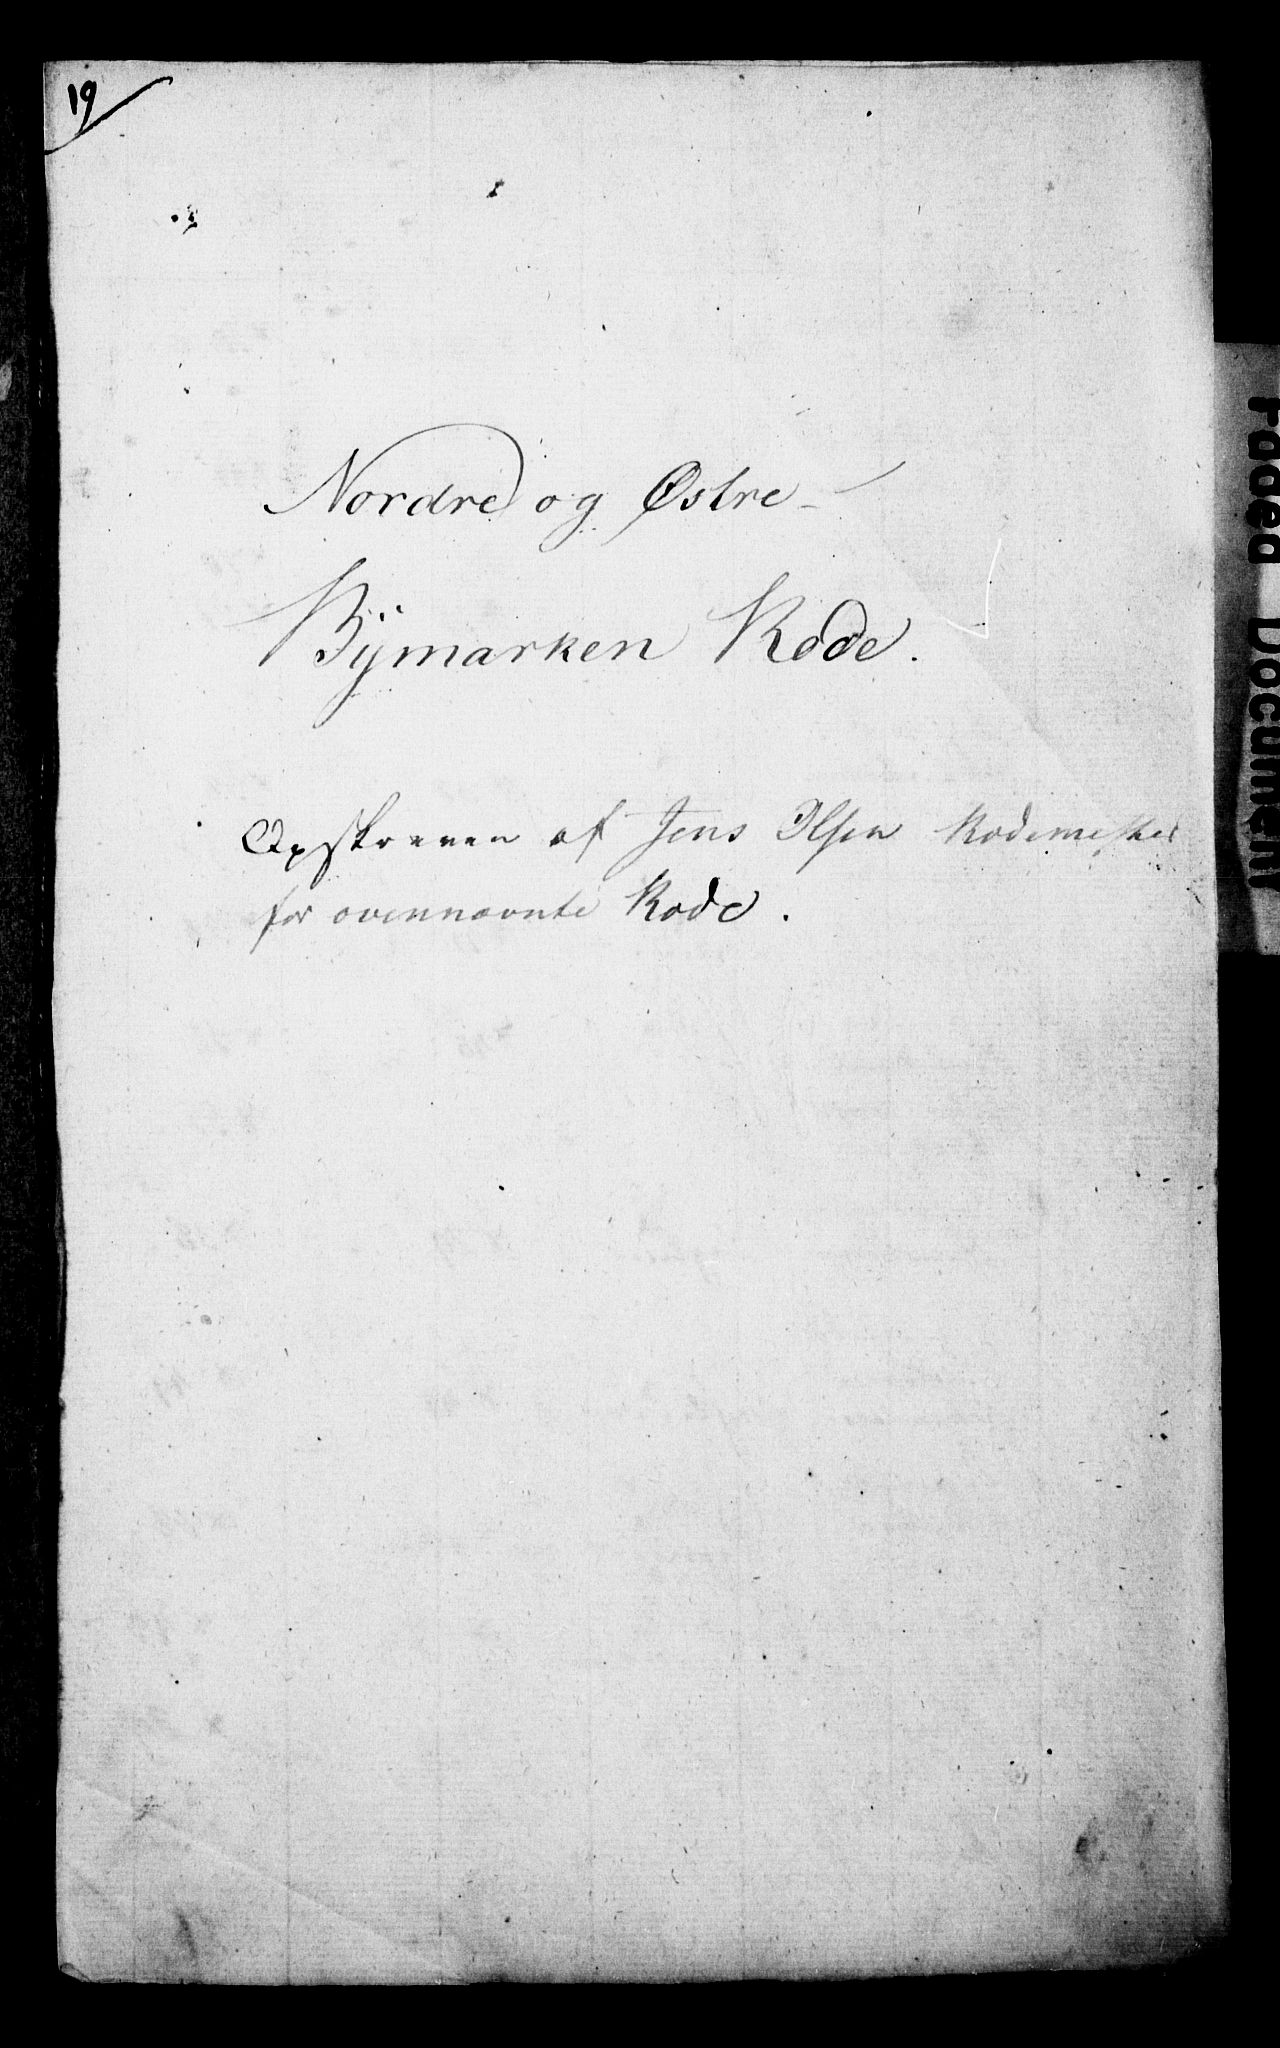 19
Nordre og Østre
Bÿmarken Rode.
Opskreven af Jens Olsen Rodemester
for ovennævnte Rode.
Faded Document